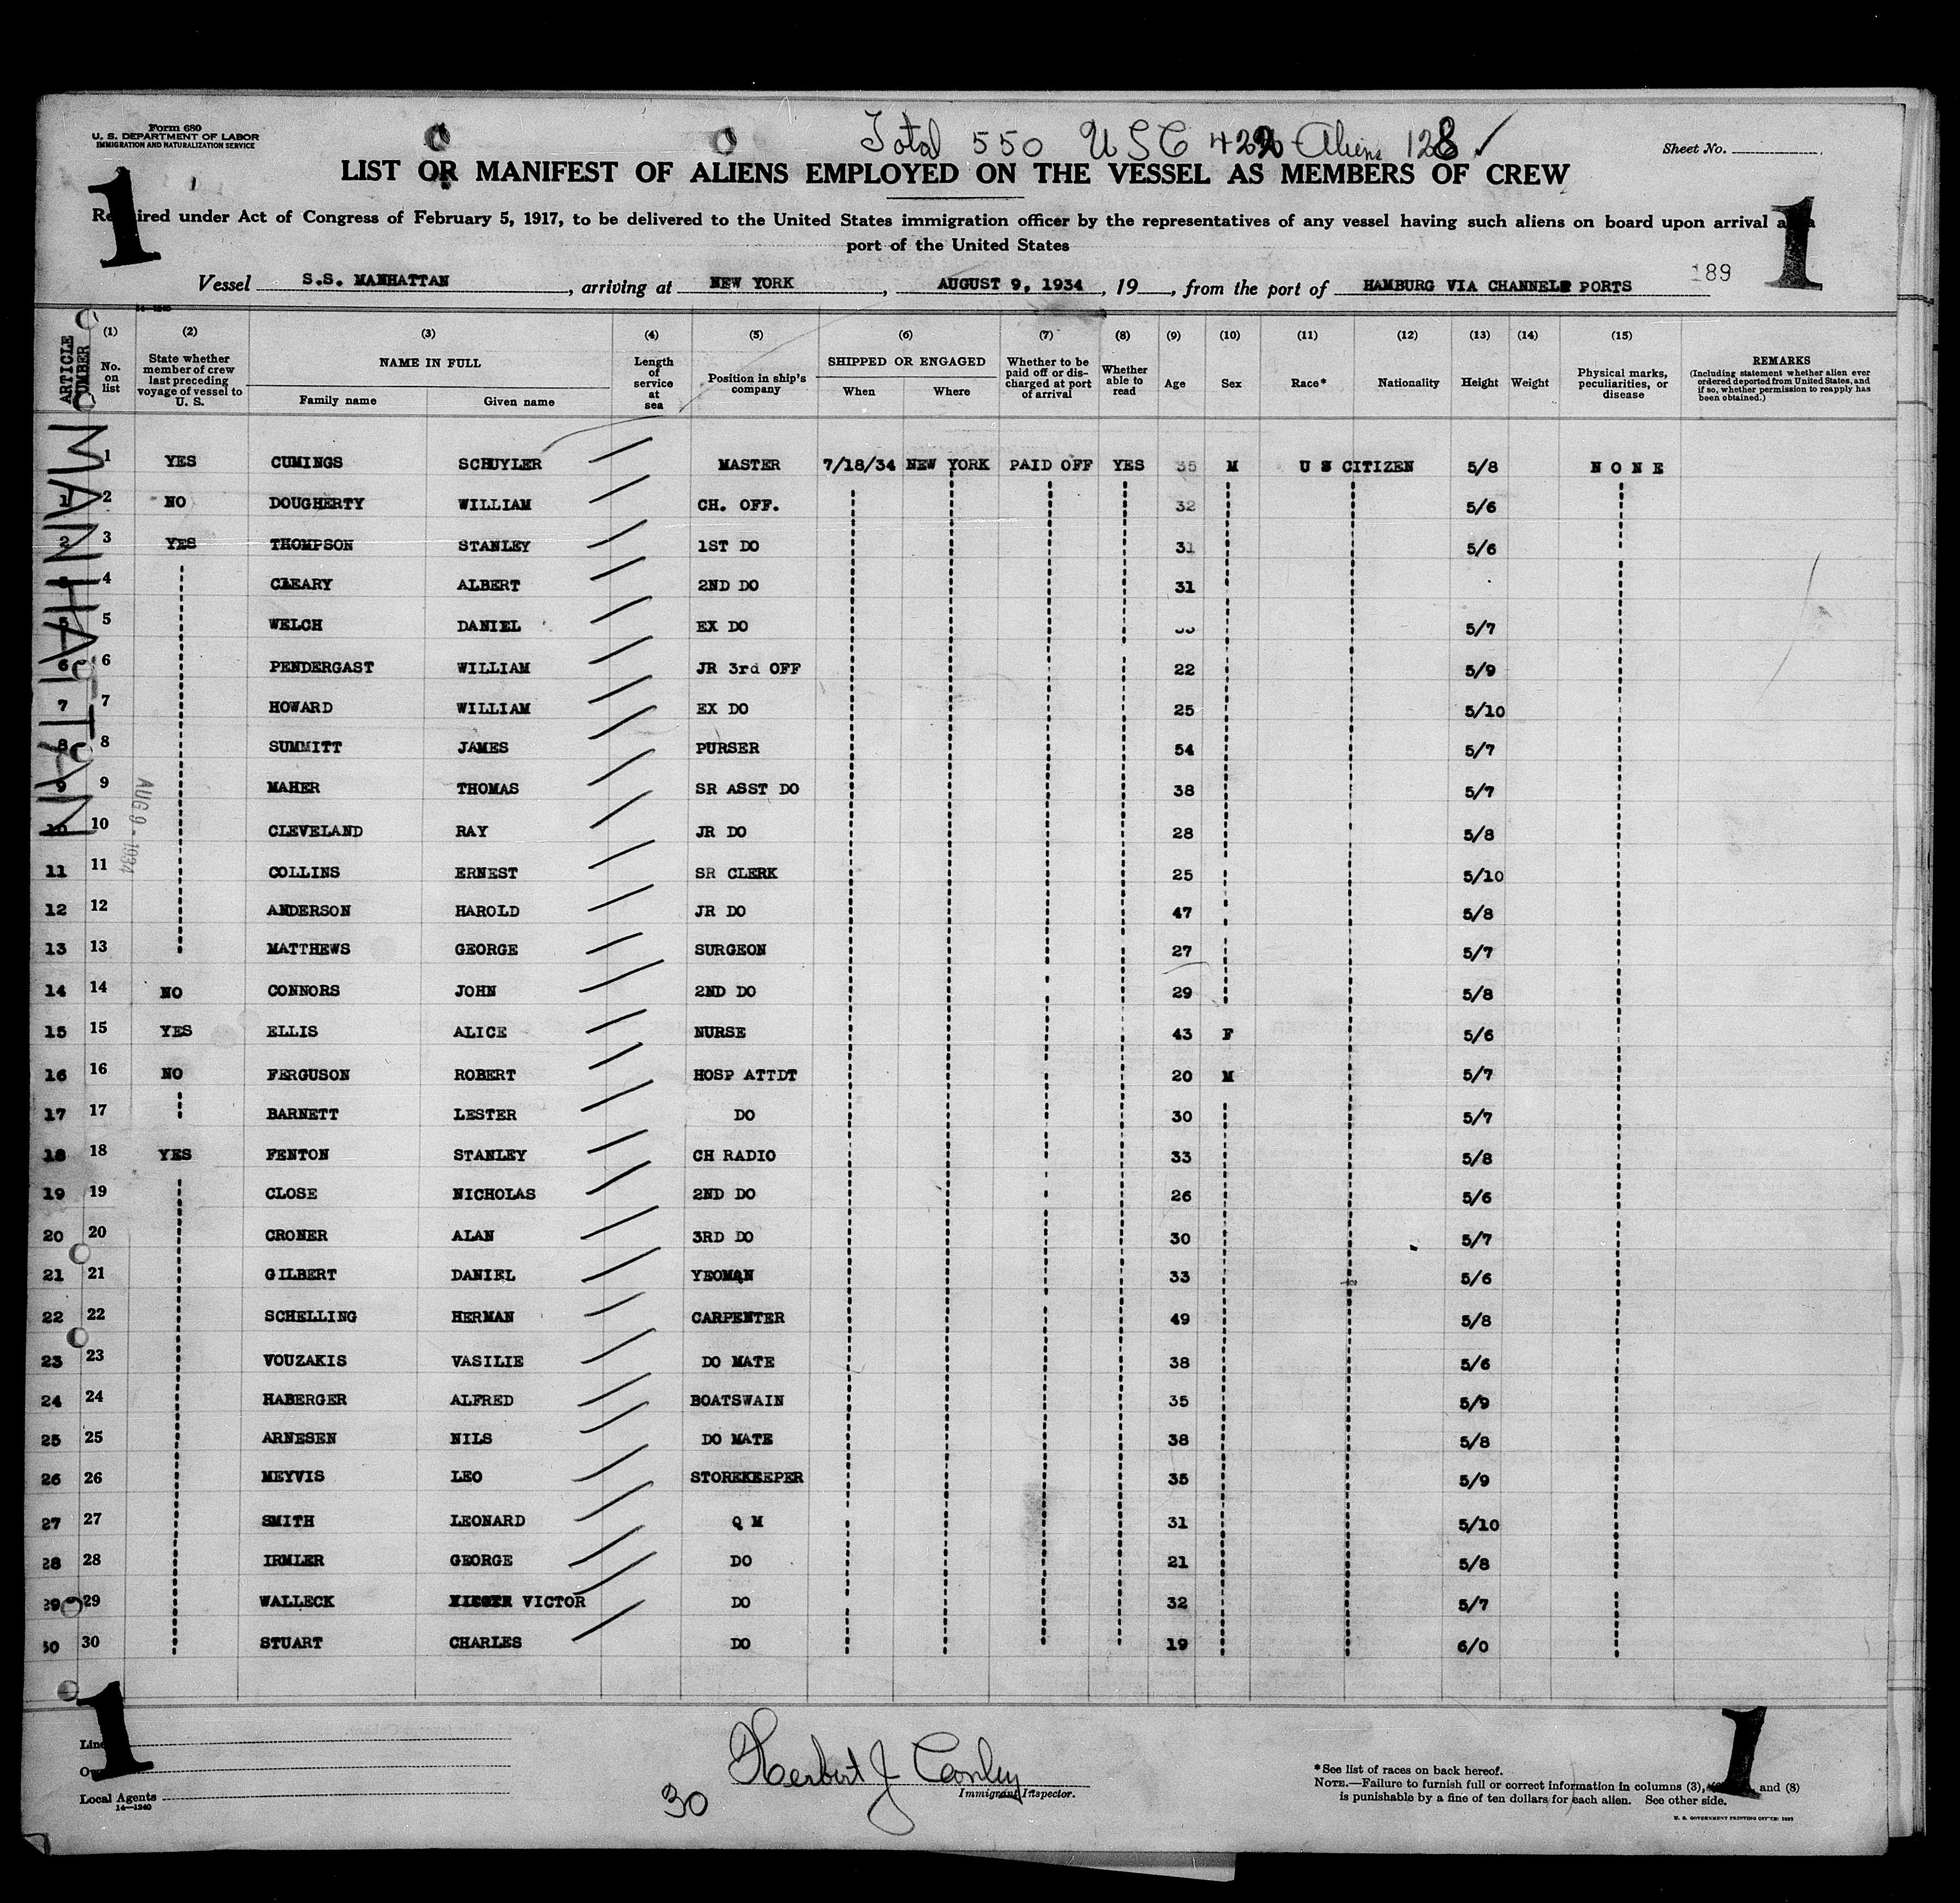 Form 680
U. S. DEPARTMENT OF LABOR
IMMIGRATION AND NATURALIZATION SERVICE
Total 550 USC 422 Aliens 128 ✓
Sheet No.
1 1
LIST OR MANIFEST OF ALIENS EMPLOYED ON THE VESSEL AS MEMBERS OF CREW
Required under Act of Congress of February 5, 1917, to be delivered to the United States immigration officer by the representatives of any vessel having such aliens on board upon arrival at a
port of the United States
189
Vessel S.S. MANHATTAN, arriving at NEW YORK, AUGUST 9, 1934, 19, from the port of HAMBURG VIA CHANNEL PORTS
ARTICLE NUMBER
(1) No. on list
(2) State whether member of crew last preceding voyage of vessel to U. S.
(3) NAME IN FULL Family name Given name
(4) Length of service at sea
(5) Position in ship's company
(6) SHIPPED OR ENGAGED When Where
(7) Whether to be paid off or discharged at port of arrival
(8) Whether able to read
(9) Age
(10) Sex
(11) Race*
(12) Nationality
(13) Height
(14) Weight
(15) Physical marks, peculiarities, or disease
REMARKS (Including statement whether alien ever ordered deported from United States, and if so, whether permission to reapply has been obtained.)
MANHATTAN
AUG 9 - 1934
1 YES CUMINGS SCHUYLER MASTER 7/18/34 NEW YORK PAID OFF YES 35 M U S CITIZEN 5/8 NONE
1 2 NO DOUGHERTY WILLIAM CH. OFF. 32 5/6
2 3 YES THOMPSON STANLEY 1ST DO 31 5/6
4 CLEARY ALBERT 2ND DO 31
5 5 WELCH DANIEL EX DO 5/7
6 6 PENDERGAST WILLIAM JR 3rd OFF 22 5/9
7 7 HOWARD WILLIAM EX DO 25 5/10
8 8 SUMMITT JAMES PURSER 54 5/7
9 9 MAHER THOMAS SR ASST DO 38 5/7
10 10 CLEVELAND RAY JR DO 28 5/8
11 11 COLLINS ERNEST SR CLERK 25 5/10
12 12 ANDERSON HAROLD JR DO 47 5/8
13 13 MATTHEWS GEORGE SURGEON 27 5/7
14 14 NO CONNORS JOHN 2ND DO 29 5/8
15 15 YES ELLIS ALICE NURSE 43 F 5/6
16 16 NO FERGUSON ROBERT HOSP ATTDT 20 M 5/7
17 17 BARNETT LESTER DO 30 5/7
18 18 YES FENTON STANLEY CH RADIO 33 5/8
19 19 CLOSE NICHOLAS 2ND DO 26 5/6
20 20 CRONER ALAN 3RD DO 30 5/7
21 21 GILBERT DANIEL YEOMAN 33 5/6
22 22 SCHELLING HERMAN CARPENTER 49 5/8
23 23 VOUZAKIS VASILIE DO MATE 38 5/6
24 24 HABERGER ALFRED BOATSWAIN 35 5/9
25 25 ARNESEN NILS DO MATE 38 5/8
26 26 MEYVIS LEO STOREKEEPER 35 5/9
27 27 SMITH LEONARD Q M 31 5/10
28 28 IRMLER GEORGE DO 21 5/8
29 29 WALLECK VICTOR DO 32 5/7
30 30 STUART CHARLES DO 19 6/0
1 1
Line
Owners
Local Agents
14—1240
30
Herbert J Conley
Immigrant Inspector.
*See list of races on back hereof.
NOTE.—Failure to furnish full or correct information in columns (3), and (8)
is punishable by a fine of ten dollars for each alien. See other side.
U. S. GOVERNMENT PRINTING OFFICE